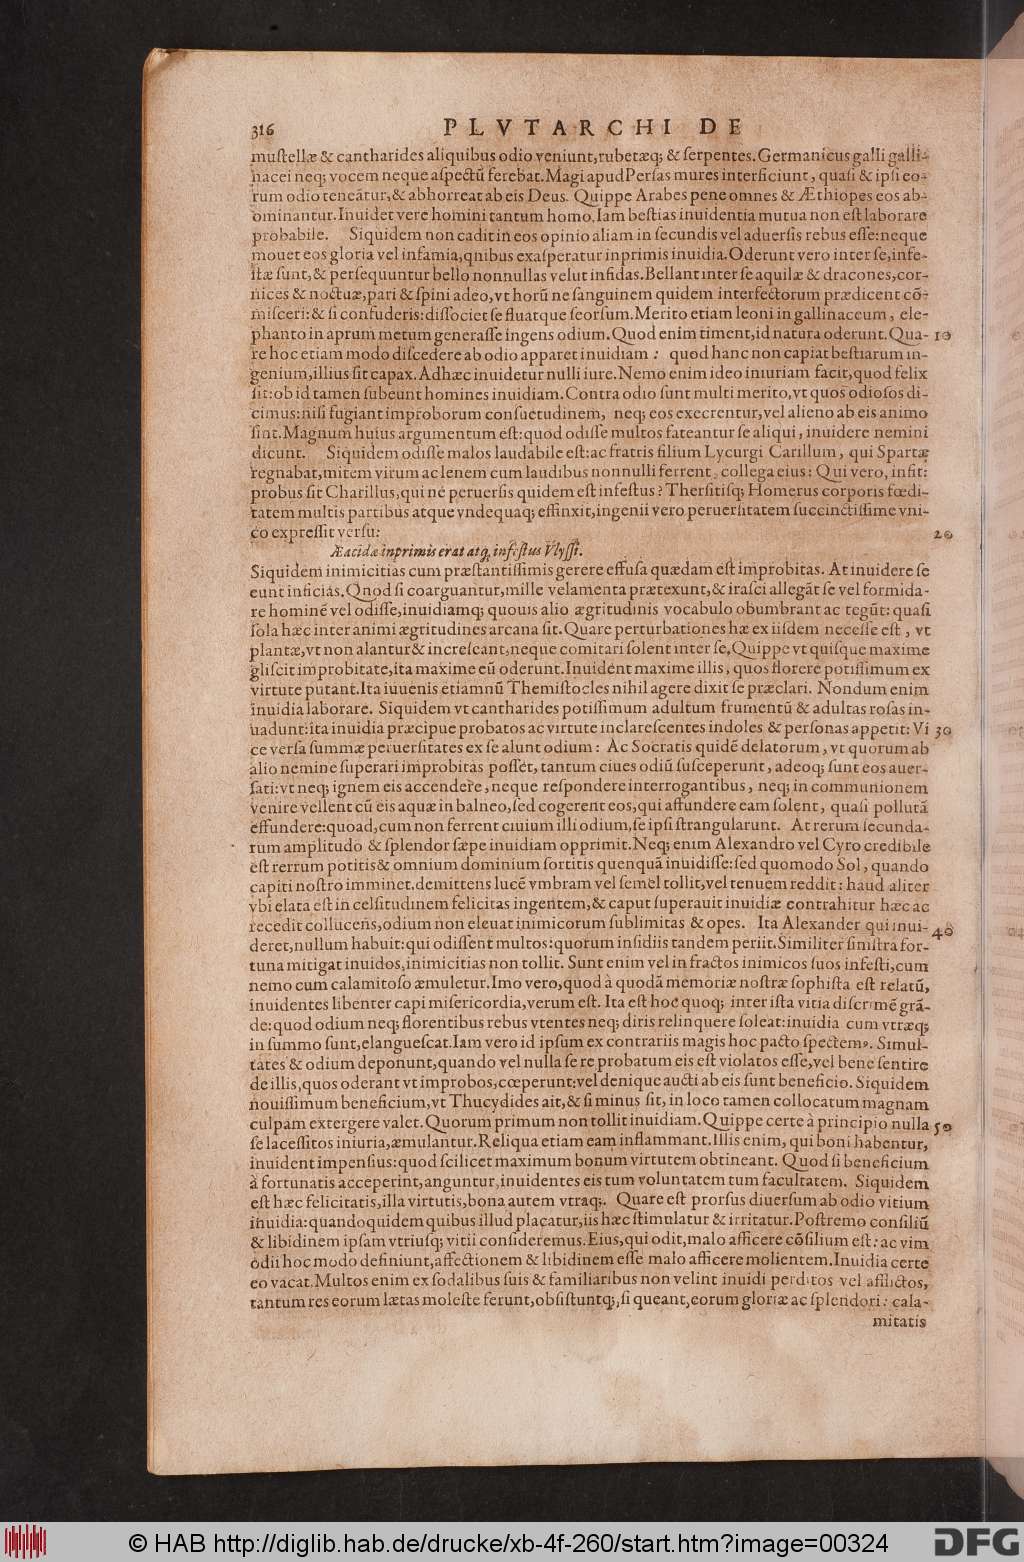 316 PLVTARCHI DE
muſtellæ & cantharides aliquibus odio veniunt,rubetæq; & ſerpentes. Germanicus galli galli-
nacei neq; vocem neque aſpectū ferebat. Magi apud Perſas mures interficiunt, quaſi & ipſi eo-
rum odio teneātur,& abhorreat ab eis Deus. Quippe Arabes pene omnes & Æthiopes eos ab-
ominantur. Inuidet vere homini tantum homo. Iam beſtias inuidentia mutua non eſt laborare
probabile. Siquidem non cadit in eos opinio aliam in ſecundis vel aduerſis rebus eſſe: neque
mouet eos gloria vel infamia,qnibus exaſperatur inprimis inuidia. Oderunt vero inter ſe,infe-
ſtæ ſunt,& perſequuntur bello nonnullas velut infidas. Bellant inter ſe aquilæ & dracones,cor-
nices & noctuæ, pari & ſpini adeo, vt horū ne ſanguinem quidem interfectorum prædicent cō-
miſceri: & ſi confuderis: diſſociet ſe fluatque ſeorſum. Merito etiam leoni in gallinaceum, ele-
phanto in aprum metum generaſſe ingens odium. Quod enim timent, id natura oderunt. Qua- 10
re hoc etiam modo diſcedere ab odio apparet inuidiam: quod hanc non capiat beſtiarum in-
genium,illius ſit capax. Adhæc inuidetur nulli iure. Nemo enim ideo iniuriam facit,quod felix
ſit:ob id tamen ſubeunt homines inuidiam. Contra odio ſunt multi merito,vt quos odioſos di-
cimus: niſi fugiant improborum conſuetudinem, neq; eos execrentur,vel alieno ab eis animo
ſint. Magnum huius argumentum eſt: quod odiſſe multos fateantur ſe aliqui, inuidere nemini
dicunt. Siquidem odiſſe malos laudabile eſt: ac fratris filium Lycurgi Carillum, qui Spartæ
regnabat,mitem virum ac lenem cum laudibus nonnulli ferrent, collega eius: Qui vero, inſit:
probus ſit Charillus,qui ne peruerſis quidem eſt infeſtus? Therſitiſq; Homerus corporis fœdi-
tatem multis partibus atque vndequaq; effinxit,ingenii vero peruerſitatem ſuccinctiſſime vni-
co expreſſit verſu: 20
Æacidæ inprimis erat atq; infeſtus Vlyſſi.
Siquidem inimicitias cum præſtantiſſimis gerere effuſa quædam eſt improbitas. At inuidere ſe
eunt inficias. Qnod ſi coarguantur,mille velamenta prætexunt,& iraſci allegāt ſe vel formida-
re hominē vel odiſſe,inuidiamq; quouis alio ægritudinis vocabulo obumbrant ac tegūt: quaſi
ſola hæc inter animi ægritudines arcana ſit. Quare perturbationes hæ ex iiſdem neceſſe eſt, vt
plantæ,vt non alantur & increſcant,neque comitari ſolent inter ſe. Quippe vt quiſque maxime
gliſcit improbitate,ita maxime eū oderunt. Inuident maxime illis, quos florere potiſſimum ex
virtute putant. Ita iuuenis etiamnū Themiſtocles nihil agere dixit ſe præclari. Nondum enim
inuidia laborare. Siquidem vt cantharides potiſſimum adultum frumentū & adultas roſas in-
uadunt: ita inuidia præcipue probatos ac virtute inclareſcentes indoles & perſonas appetit: Vi 30
ce verſa ſummæ peruerſitates ex ſe alunt odium: Ac Socratis quidē delatorum, vt quorum ab
alio nemine ſuperari improbitas poſſet, tantum ciues odiū ſuſceperunt, adeoq; ſunt eos auer-
ſati: vt neq; ignem eis accendere, neque reſpondere interrogantibus, neq; in communionem
venire vellent cū eis aquæ in balneo,ſed cogerent eos,qui affundere eam ſolent, quaſi pollutā
effundere: quoad,cum non ferrent ciuium illi odium,ſe ipſi ſtrangularunt. At rerum ſecunda-
rum amplitudo & ſplendor ſæpe inuidiam opprimit. Neq; enim Alexandro vel Cyro credibile
eſt rerrum potitis & omnium dominium ſortitis quenquā inuidiſſe: ſed quomodo Sol, quando
capiti noſtro imminet, demittens lucē vmbram vel ſemel tollit,vel tenuem reddit: haud aliter
vbi elata eſt in celſitudinem felicitas ingentem,& caput ſuperauit inuidiæ contrahitur hæc ac
recedit collucens,odium non eleuat inimicorum ſublimitas & opes. Ita Alexander qui inui- 40
deret,nullum habuit: qui odiſſent multos: quorum inſidiis tandem periit. Similiter ſiniſtra for-
tuna mitigat inuidos,inimicitias non tollit. Sunt enim vel in fractos inimicos ſuos infeſti,cum
nemo cum calamitoſo æmuletur. Imo vero,quod à quodā memoriæ noſtræ ſophiſta eſt relatū,
inuidentes libenter capi miſericordia,verum eſt. Ita eſt hoc quoq; inter iſta vitia diſcrimē grā-
de: quod odium neq; florentibus rebus vtentes neq; diris relinquere ſoleat: inuidia cum vtræq;
in ſummo ſunt,elangueſcat. Iam vero id ipſum ex contrariis magis hoc pacto ſpectem⁹. Simul-
tates & odium deponunt,quando vel nulla ſe re probatum eis eſt violatos eſſe,vel bene ſentire
de illis,quos oderant vt improbos,cœperunt: vel denique aucti ab eis ſunt beneficio. Siquidem
nouiſſimum beneficium,vt Thucydides ait,& ſi minus ſit, in loco tamen collocatum magnam
culpam extergere valet. Quorum primum non tollit inuidiam. Quippe certe à principio nulla 50
ſe laceſſitos iniuria,æmulantur. Reliqua etiam eam inflammant. Illis enim, qui boni habentur,
inuident impenſius: quod ſcilicet maximum bonum virtutem obtineant. Quod ſi beneficium
à fortunatis acceperint,anguntur,inuidentes eis tum voluntatem tum facultatem. Siquidem
eſt hæc felicitatis,illa virtutis,bona autem vtraq;. Quare eſt prorſus diuerſum ab odio vitium
inuidia: quandoquidem quibus illud placatur,iis hæc ſtimulatur & irritatur. Poſtremo conſiliū
& libidinem ipſam vtriuſq; vitii conſideremus. Eius,qui odit,malo afficere cōſilium eſt: ac vim
odii hoc modo definiunt,affectionem & libidinem eſſe malo afficere molientem. Inuidia certe
eo vacat. Multos enim ex ſodalibus ſuis & familiaribus non velint inuidi perditos vel afflictos,
tantum res eorum lætas moleſte ferunt,obſiſtuntq;,ſi queant,eorum gloriæ ac ſplendori: cala-
mitatis
© HAB http://diglib.hab.de/drucke/xb-4f-260/start.htm?image=00324 DFG